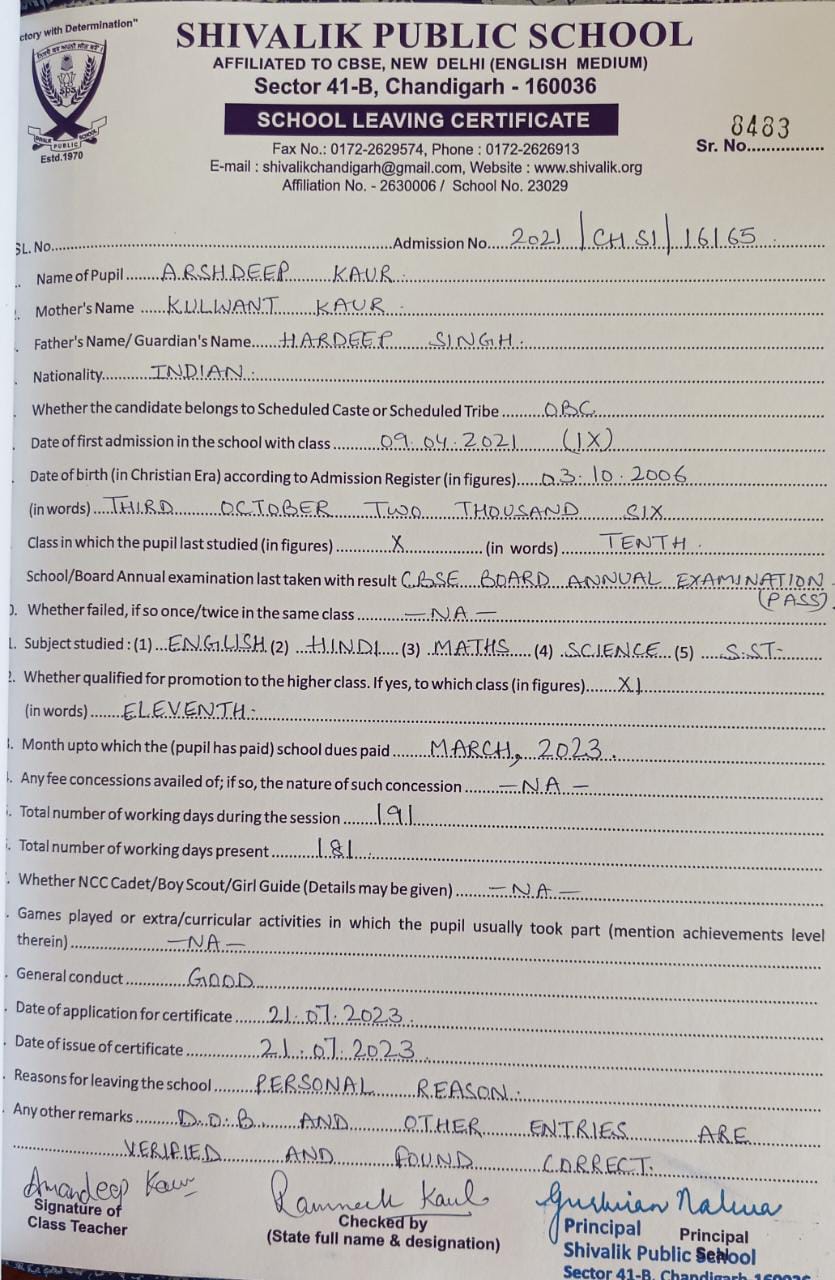 ctory with Determination"
SHIVALIK PUBLIC SCHOOL
AFFILIATED TO CBSE, NEW DELHI (ENGLISH MEDIUM)
Sector 41-B, Chandigarh - 160036
SCHOOL LEAVING CERTIFICATE
8483
Sr. No...............
SPS
PUBLIC SCHOOL
Estd.1970
Fax No.: 0172-2629574, Phone : 0172-2626913
E-mail : shivalikchandigarh@gmail.com, Website : www.shivalik.org
Affiliation No. - 2630006 / School No. 23029
SL. No.......... Admission No. 2021/CHSI/16165
Name of Pupil ARSHDEEP KAUR.
Mother's Name KULWANT KAUR.
Father's Name/ Guardian's Name HARDEEP SINGH.
Nationality INDIAN.
Whether the candidate belongs to Scheduled Caste or Scheduled Tribe OBC
Date of first admission in the school with class 09.04.2021 (IX)
Date of birth (in Christian Era) according to Admission Register (in figures) 03.10.2006
(in words) THIRD OCTOBER TWO THOUSAND SIX
Class in which the pupil last studied (in figures) X (in words) TENTH.
School/Board Annual examination last taken with result CBSE BOARD ANNUAL EXAMINATION
(PASS).
Whether failed, if so once/twice in the same class —NA—
Subject studied : (1) ENGLISH (2) HINDI (3) MATHS (4) SCIENCE (5) S.ST.
Whether qualified for promotion to the higher class. If yes, to which class (in figures) XI
(in words) ELEVENTH.
Month upto which the (pupil has paid) school dues paid MARCH, 2023.
Any fee concessions availed of; if so, the nature of such concession —NA—
Total number of working days during the session 191
Total number of working days present 181.
Whether NCC Cadet/Boy Scout/Girl Guide (Details may be given) —NA—
Games played or extra/curricular activities in which the pupil usually took part (mention achievements level
therein) —NA—
General conduct GOOD
Date of application for certificate 21.07.2023.
Date of issue of certificate 21.07.2023
Reasons for leaving the school PERSONAL REASON.
Any other remarks D.O.B. AND OTHER ENTRIES ARE
VERIFIED AND FOUND CORRECT.
Amandeep Kaur
Signature of
Class Teacher
Kaul
Checked by
(State full name & designation)
Principal
Principal
Shivalik Public School
Sector 41-B, Chandigarh-160036